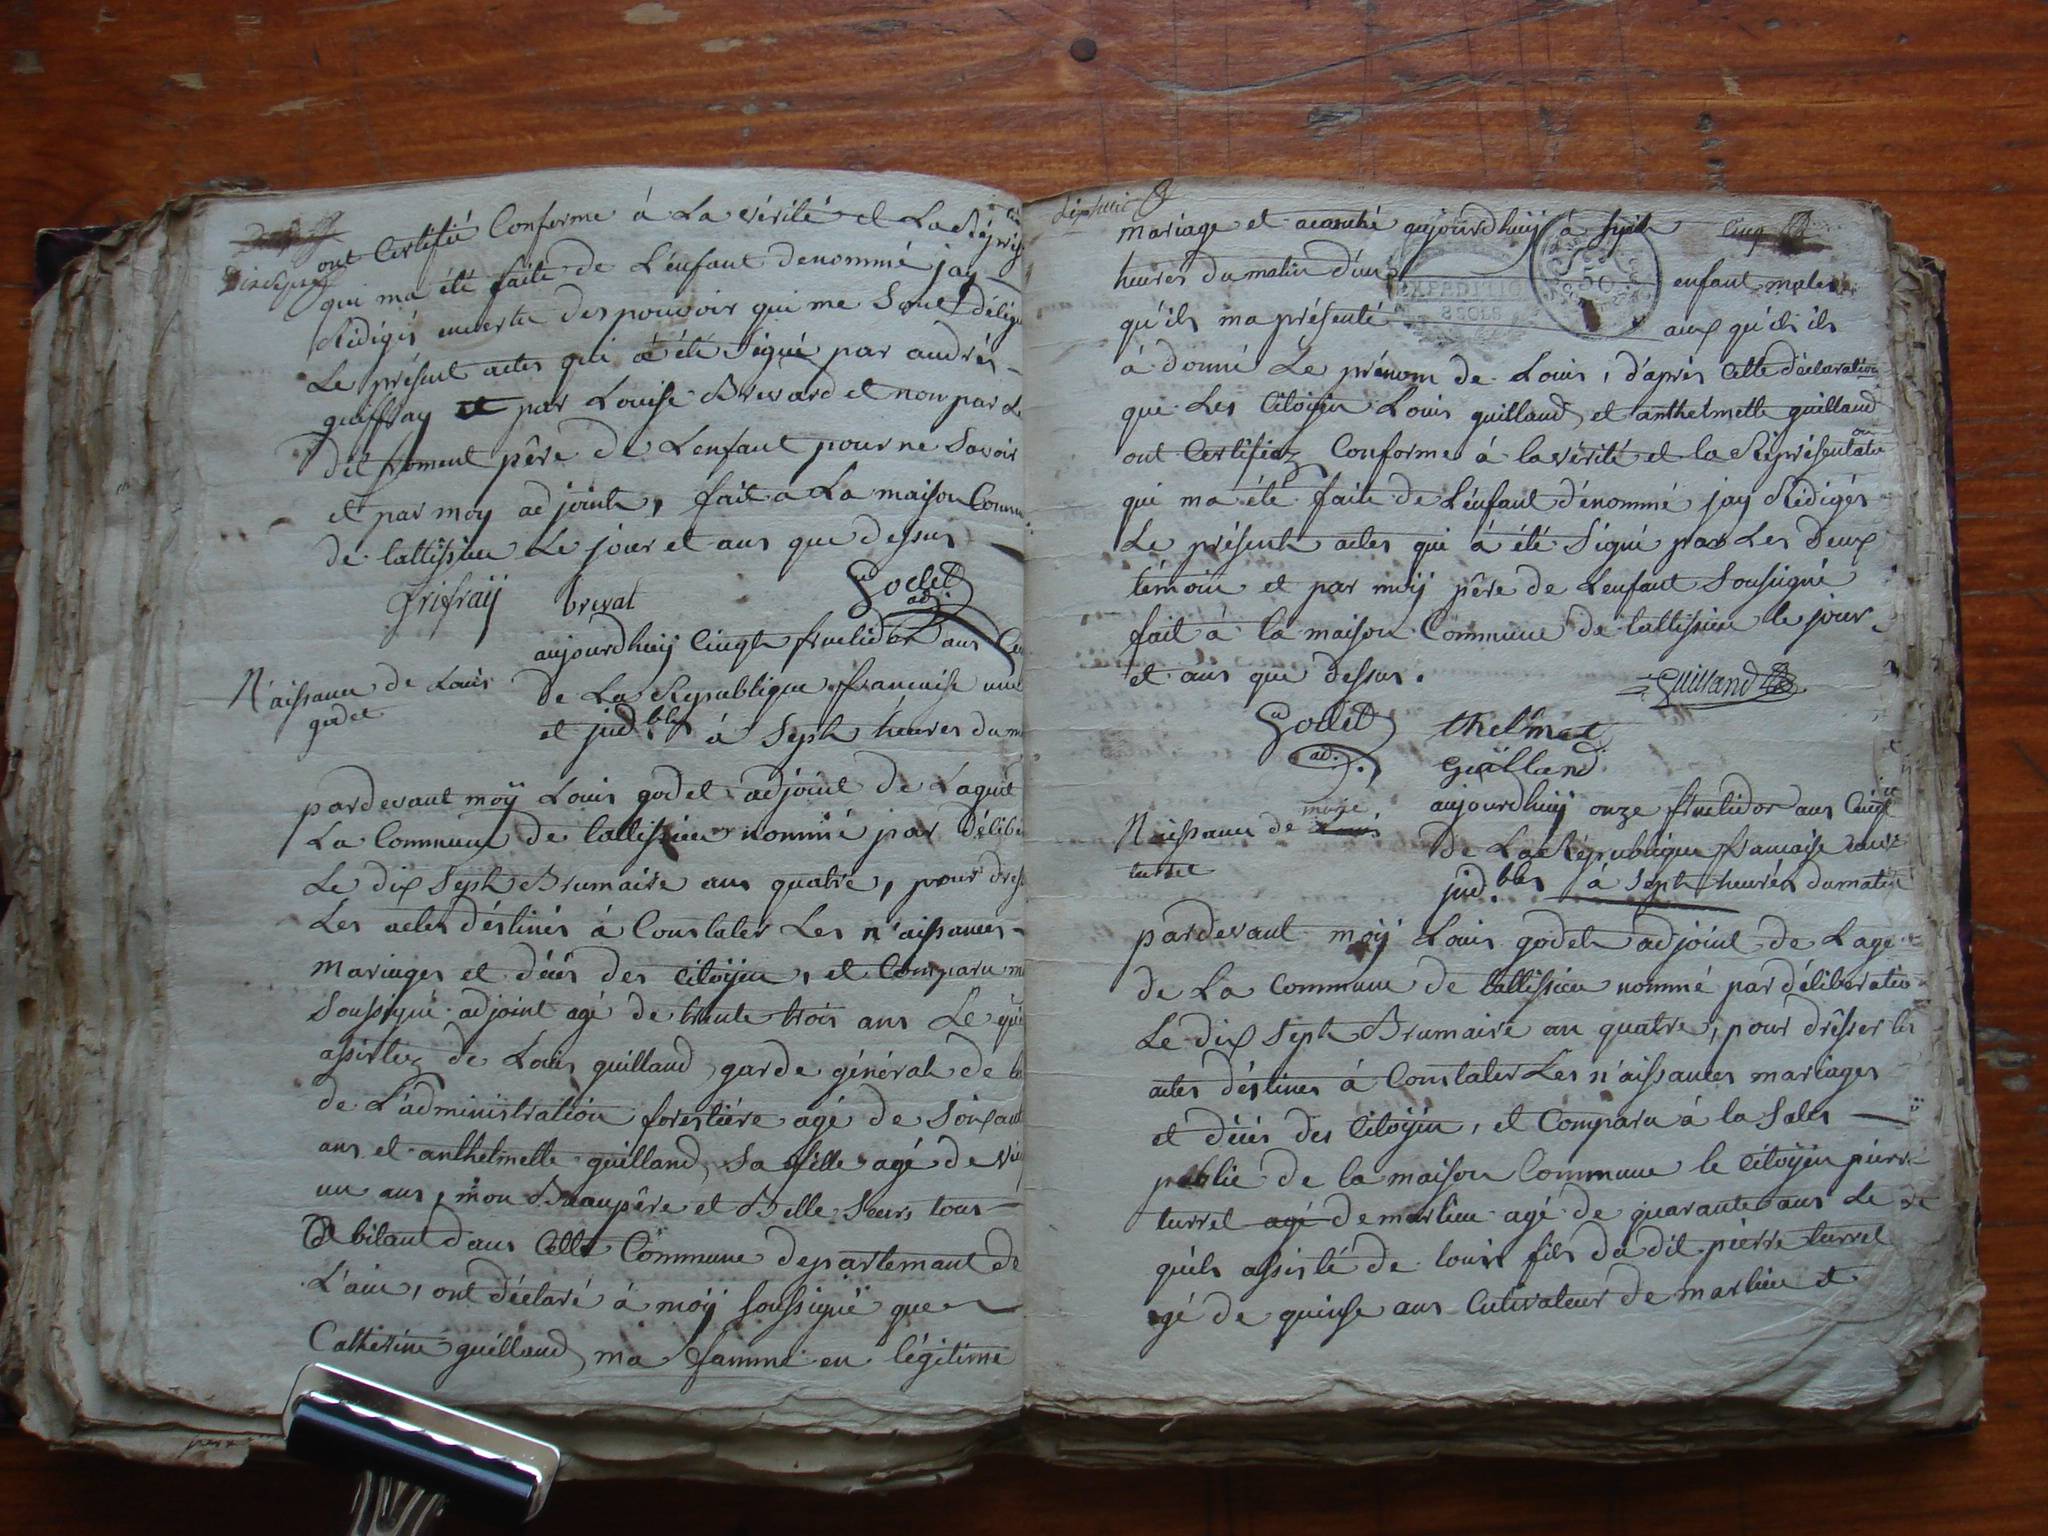 ont Certifié Conforme á La vérité et La Répris
qui ma été faite de L'enfant denommé jay
Rédigés envertu des pouvoir qui me Sont délégu
Le présent actes qui á été Signé par andrés
guiffray et par Louise Brevard et non par Le
dit froment pêre de Lenfant pour ne Savoir
et par moy adjoint, fait a La maison Commu
de lattissieu Le jour et ans que dessus
Grifraÿ brevat Godet
ad.
Naissance de Louis
godet
aujourdhuij Cinqt fructidor ans Cin
de La Republique francaise une
et jnd.ble á Sept heures du m
pardevant moÿ Louis godet adjoint de Lagent
La Commune de lattissieu nommé par délibér
Le dix Sept Brumaire ans quatre, pour dress
Les actes déstinés á Constater Les n'aissances
mariages et décés des Citoÿen, et Comparu m
Soussigné adjoint agé de trente trois ans Le qu'el
assistez de Louis guilland garde général de la
de L'administration forestiére agé de Soixant
ans et anthelmette guilland Sa fille agé de vin
un ans, mon Beaupêre et Belle Seurs tous
abitant dans Cette Commune departemant de
L'ain, ont déclaré á moÿ soussigné que
Catherine guilland ma famme en légitime
mariage et acouché aujourdhuij á Sept Cinq
heures du matin d'un enfant males
EXPEDITIO
50
qu'ils ma présenté auxquels ils
á donné Le prénom de Louis, d'aprés Cette déclaration
que Les Citoyen Louis guilland et anthelmette guilland
ont Certifiez Conforme á la vérité et la Réprésentation
qui má été faite de L'enfant dénommé jay Rédigés
Le présent actes qui á été Signé par Les deux
témoin et par moij pêre de Lenfant Soussigné
fait á la maison Commune de lattissieu le jour
et ans que dessus.
Guilland
Godet thelmet
ad. guilland
Naissance de Louis marie
turrel
aujourdhuij onze fructidor ans Cinq
de La Républiqu francaise une
jnd.bles á Sept heures du matin
pardevant moij Louis godet adjoint de Lage
de La Commune de lattissieu nommé par déliberation
Le dix Sept Brumaire an quatre, pour drêsser les
actes déstines á Constater Les n'aissances mariages
et décés des Citoÿen, et Comparu á la Sales
public de la maison Commune le Citoÿen pierre
turrel agé de marlieu agé de quarante ans Le
quels assisté de louis fils du dit pierre turrel
agé de quinse ans Cultivateur de marlieu et